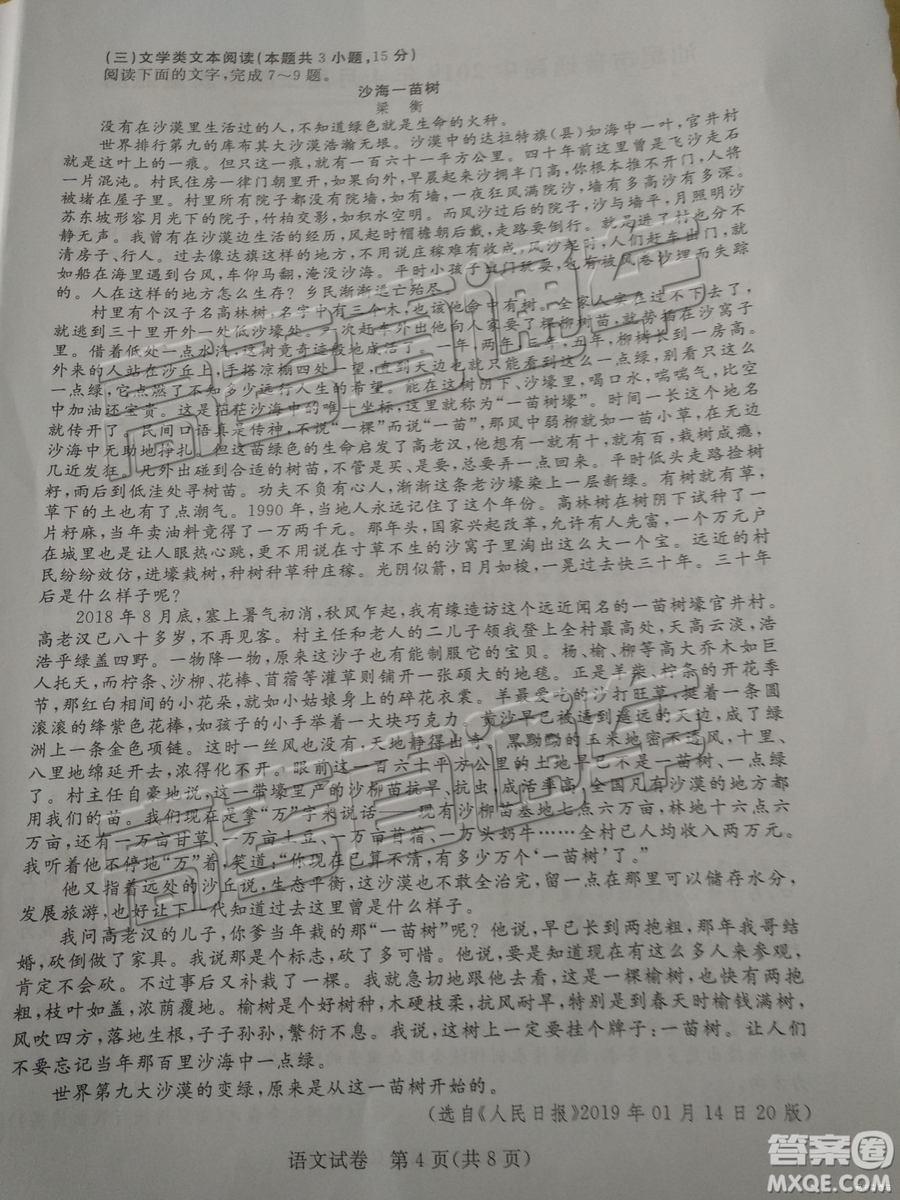 (三)文学类文本阅读(本题共3小题,15分)
阅读下面的文字,完成7～9题。
沙海一苗树
梁 衡
没有在沙漠里生活过的人,不知道绿色就是生命的火种。
世界排行第九的库布其大沙漠浩瀚无垠。沙漠中的达拉特旗(县)如海中一叶,官井村
就是这叶上的一痕。但只这一痕,就有一百六十一平方公里。四十年前这里曾是飞沙走石
一片混沌。村民住房一律门朝里开,如果向外,早晨起来沙拥半门高,你根本推不开门,人将
被堵在屋子里。村里所有院子都没有院墙,如有墙,一夜狂风满院沙,墙有多高沙有多深。
苏东坡形容月光下的院子,竹柏交影,如积水空明。而风沙过后的院子,沙与墙平,月照明沙
静无声。我曾有在沙漠边生活的经历,风起时帽檐朝后戴,走路要倒行。就是进了村也分不
清房子、行人。过去像达旗这样的地方,不用说庄稼难有收成,风沙起时,人们赶车出门,
如船在海里遇到台风,车仰马翻,淹没沙海。平时小孩子出门玩耍,也有被风卷沙埋而失踪
的。人在这样的地方怎么生存？乡民渐渐逃亡殆尽。
村里有个汉子名高林树,名字中有三个木,也该他命中有树。全家人实在过不下去,
就逃到三十里开外一处低沙壕处。一次赶车外出他向人家要了棵柳树苗,就势插在沙窝子
里。借着低处一点水汽,这树竟奇迹般地成活了。一年,两年,三年,五年,柳树长到一房高。
外来的人站在沙丘上,手搭凉棚四处一望,直到天边也就只能看到这么一点绿,别看只这么
一点绿,它点燃了不知多少远行人生的希望。能在这树阴下、沙壕里,喝口水,喘喘气,比空
中加油还宝贵。这是茫茫沙海中的唯一坐标,这里就称为“一苗树壕”。时间一长这个地名
就传开了。民间口语真是传神,不说“一棵”而说“一苗”,那风中弱柳就如一苗小草,在无边
沙海中无助地挣扎。但这苗绿色的生命启发了高老汉,他想有一就有十,就有百,栽树成瘾,
几近发狂。凡外出碰到合适的树苗,不管是买、是要,总要弄一点回来。平时低头走路捡树
籽,雨后到低洼处寻树苗。功夫不负有心人,渐渐这条老沙壕染上一层新绿。有树就有草,
草下的土也有了点潮气。1990年,当地人永远记住了这个年份。高林树在树阴下试种了一
片籽麻,当年卖油料竟得了一万两千元。那年头,国家兴起改革,允许有人先富,一个万元户
在城里也是让人眼热心跳,更不用说在寸草不生的沙窝子里淘出这么大一个宝。远近的村
民纷纷效仿,进壕栽树,种树种草种庄稼。光阴似箭,日月如梭,一晃过去快三十年。三十年
后是什么样子呢？
2018年8月底,塞上暑气初消,秋风乍起,我有缘造访这个远近闻名的一苗树壕官井村。
高老汉已八十多岁,不再见客。村主任和老人的二儿子领我登上全村最高处,天高云淡,浩
浩乎绿盖四野。一物降一物,原来这沙子也有能制服它的宝贝。杨、榆、柳等高大乔木如巨
人托天,而柠条、沙柳、花棒、苜蓿等灌草则铺开一张硕大的地毯。正是羊柴、柠条的开花季
节,那红白相间的小花朵,就如小姑娘身上的碎花衣裳。羊最爱吃的沙打旺草,挺着一条圆
滚滚的绛紫色花棒,如孩子的小手举着一大块巧克力。黄沙早已被逼到遥远的天边,成了绿
洲上一条金色项链。这时一丝风也没有,天地静得出奇。黑黝黝的玉米地密不透风,十里、
八里地绵延开去,浓得化不开。眼前这一百六十平方公里的土地早已不是一苗树、一点绿
了。村主任自豪地说,这一带壕里产的沙柳苗抗旱、抗虫,成活率高,全国凡有沙漠的地方都
用我们的苗。我们现在是拿“万”字来说话——现有沙柳苗基地七点六万亩,林地十六点六
万亩,还有一万亩甘草、一万亩土豆、一万亩苜蓿、一万头奶牛……全村已人均收入两万元。
我听着他不停地“万”着,笑道:“你现在已算不清,有多少万个‘一苗树’了。”
他又指着远处的沙丘说,生态平衡,这沙漠也不敢全治完,留一点在那里可以储存水分,
发展旅游,也好让下一代知道过去这里曾是什么样子。
我问高老汉的儿子,你爹当年栽的那“一苗树”呢？他说,早已长到两抱粗,那年我哥结
婚,砍倒做了家具。我说那是个标志,砍了多可惜。他说,要是知道现在有这么多人来参观,
肯定不会砍。不过事后又补栽了一棵。我就急切地跟他去看,这是一棵榆树,也快有两抱
粗,枝叶如盖,浓荫覆地。榆树是个好树种,木硬枝柔,抗风耐旱,特别是到春天时榆钱满树,
风吹四方,落地生根,子子孙孙,繁衍不息。我说,这树上一定要挂个牌子:一苗树。让人们
不要忘记当年那百里沙海中一点绿。
世界第九大沙漠的变绿,原来是从这一苗树开始的。
(选自《人民日报》2019年01月14日20版)
语文试卷 第4页(共8页)
高考直通车
高考直通车
答案圈
MXQE.COM